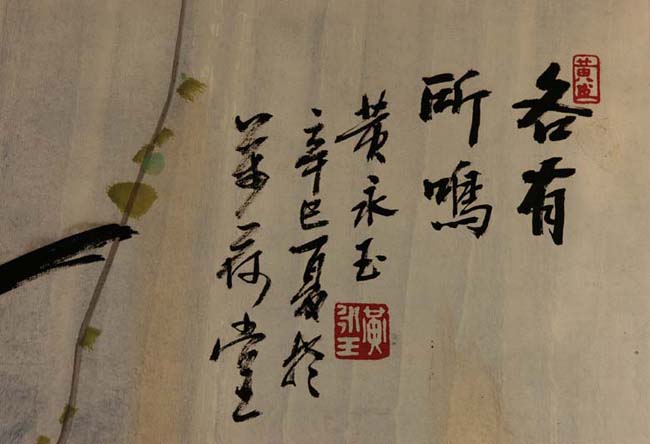 各有
所鳴
黄永玉
辛巳夏於
萬荷堂
黄永玉